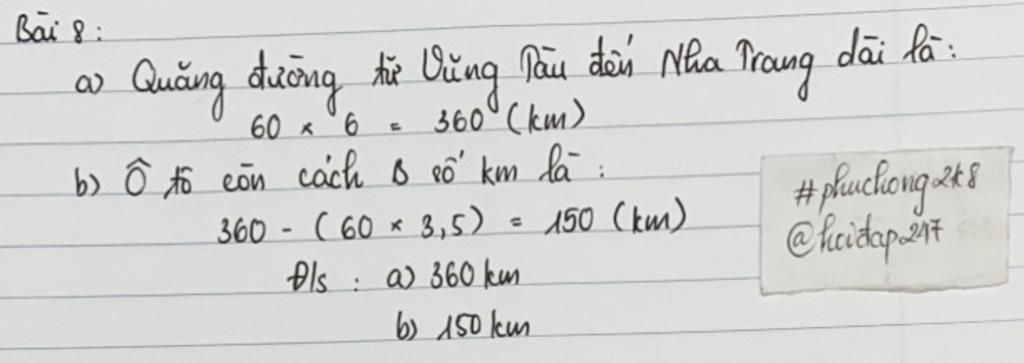 Bài 8:
a) Quãng đường từ Vũng Tàu đến Nha Trang dài là:
60 × 6 = 360 (km)
b) Ô tô còn cách B số km là:
360 - (60 × 3,5) = 150 (km)
Đ/s: a) 360 km
b) 150 km
#phuchong2k8
@hoidap247